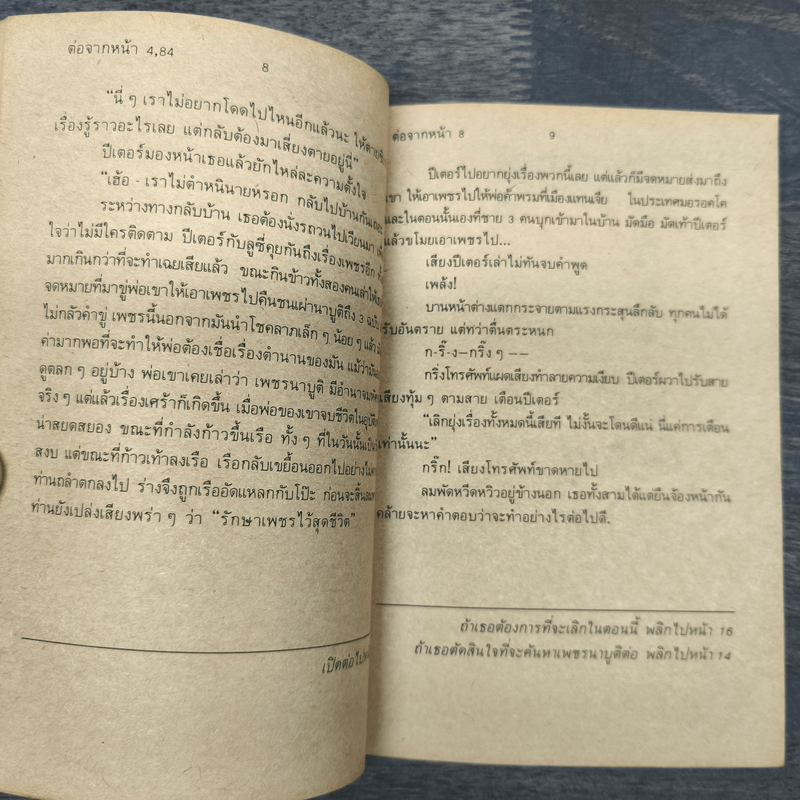 ต่อจากหน้า 4,84
8
“นี่ ๆ เราไม่อยากโดดไปไหนอีกแล้วนะ ให้ตายซิ
เรื่องรู้ราวอะไรเลย แต่กลับต้องมาเสี่ยงตายอยู่นี่”
ปีเตอร์มองหน้าเธอแล้วยักไหล่ละความตั้งใจ
“เฮ้อ - เราไม่ตำหนินายหรอก กลับไปบ้านกันเถอะ
ระหว่างทางกลับบ้าน เธอต้องนั่งรถวนไปเวียนมา
ใจว่าไม่มีใครติดตาม ปีเตอร์กับลูซี่คุยกันถึงเรื่องเพชรอีก
มากเกินกว่าที่จะทำเฉยเสียแล้ว ขณะกินข้าวทั้งสองคนเล่าให้
จดหมายที่มาขู่พ่อเขาให้เอาเพชรไปคืนชนเผ่านาบูติถึง 3 ฉบับ
ไม่กลัวคำขู่ เพชรนี้นอกจากมันนำโชคลาภเล็ก ๆ น้อย ๆ แล้ว
ค่ามากพอที่จะทำให้พ่อต้องเชื่อเรื่องตำนานของมัน แม้ว่า
ดูตลก ๆ อยู่บ้าง พ่อเขาเคยเล่าว่า เพชรนาบูติ มีอำนาจ
จริง ๆ แต่แล้วเรื่องเศร้าก็เกิดขึ้น เมื่อพ่อของเขาจบชีวิตใน
น่าสยดสยอง ขณะที่กำลังก้าวขึ้นเรือ ทั้ง ๆ ที่ในวันนั้น
สงบ แต่ขณะที่ก้าวเท้าลงเรือ เรือกลับเขยื้อนออกไปอย่าง
ท่านถลำตกลงไป ร่างจึงถูกเรืออัดแหลกกับโป๊ะ ก่อนจะสิ้นลม
ท่านยังเปล่งเสียงพร่า ๆ ว่า “รักษาเพชรไว้สุดชีวิต”
เปิดต่อไป
ต่อจากหน้า 8
9
ปีเตอร์ไปอยากยุ่งเรื่องพวกนี้เลย แต่แล้วก็มีจดหมายส่งมาถึง
เขา ให้เอาเพชรไปให้พ่อค้าพรมที่เมืองแทนเจีย ในประเทศมอรอคโค
และในตอนนั้นเองที่ชาย 3 คนบุกเข้ามาในบ้าน มัดมือ มัดเท้าปีเตอร์
แล้วขโมยเอาเพชรไป...
เสียงปีเตอร์เล่าไม่ทันจบคำพูด
เพล้ง!
บานหน้าต่างแตกกระจายตามแรงกระสุนลึกลับ ทุกคนไม่ได้
รับอันตราย แต่ทว่าตื่นตระหนก
ก-ริ๊-ง-กริ๊ง ๆ --
กริ่งโทรศัพท์แผดเสียงทำลายความเงียบ ปีเตอร์ผวาไปรับสาย
เสียงทุ้ม ๆ ตามสาย เตือนปีเตอร์
“เลิกยุ่งเรื่องทั้งหมดนี้เสียที ไม่งั้นจะโดนดีแน่ นี่แค่การเตือน
เท่านั้นนะ”
กริ๊ก! เสียงโทรศัพท์ขาดหายไป
ลมพัดหวีดหวิวอยู่ข้างนอก เธอทั้งสามได้แต่ยืนจ้องหน้ากัน
คล้ายจะหาคำตอบว่าจะทำอย่างไรต่อไปดี.
ถ้าเธอต้องการที่จะเลิกในตอนนี้ พลิกไปหน้า 16
ถ้าเธอตัดสินใจที่จะค้นหาเพชรนาบูติต่อ พลิกไปหน้า 14